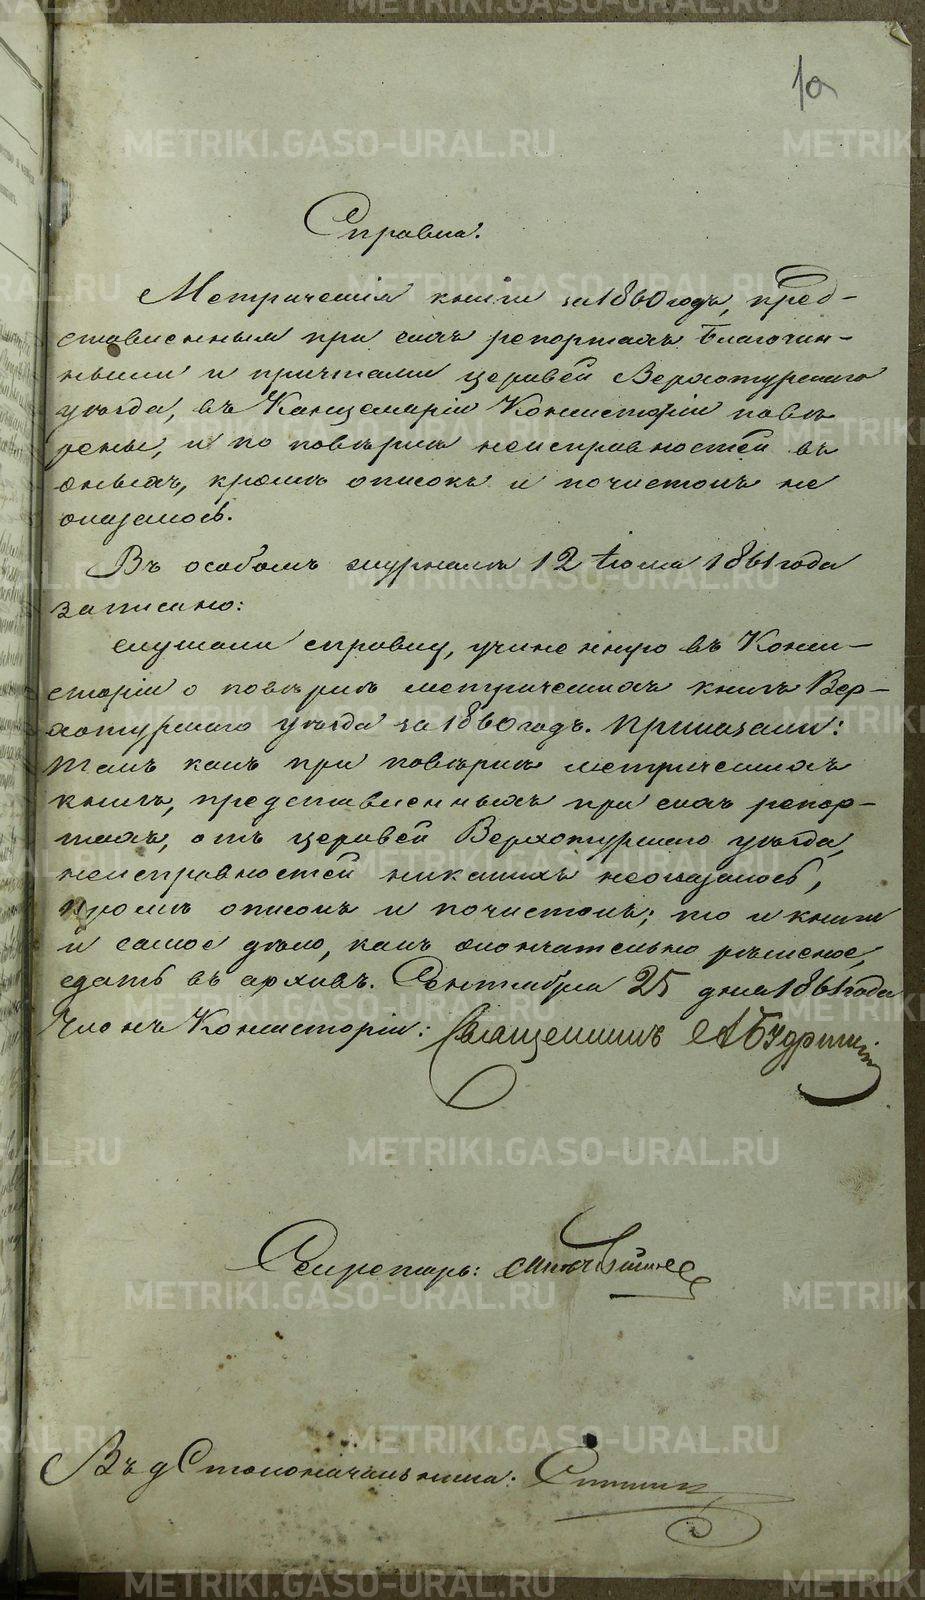 10
Справка.
Метрическія книги за 1860 годъ, пред-
ставленныя при сихъ репортахъ Благочин-
ными и причтами церквей Верхотурскаго
уѣзда, въ Канцеляріи Консисторіи повѣ
рены, и по повѣркѣ неисправностей въ
оныхъ, кромѣ описокъ и почистокъ не
оказалось.
Въ особомъ журналѣ 12 Іюля 1861 года
записано:
слушали справку, учиненную въ Конси-
сторіи о повѣркѣ метрическихъ книгъ Вер-
хотурскаго уѣзда за 1860 годъ. Приказали:
Такъ какъ при повѣркѣ метрическихъ
книгъ, представленныхъ при сихъ репор-
тахъ, отъ церквей Верхотурскаго уѣзда,
неисправностей никакихъ неоказалось,
кромѣ описокъ и почистокъ; то и книги
и самое дѣло, какъ окончательно рѣшеное,
сдать въ архивъ. Сентября 25 дня 1861 года
Членъ Консисторіи: Священникъ А
Секретарь:
Въ д Столоначальника:
METRIKI.GASO-URAL.RU